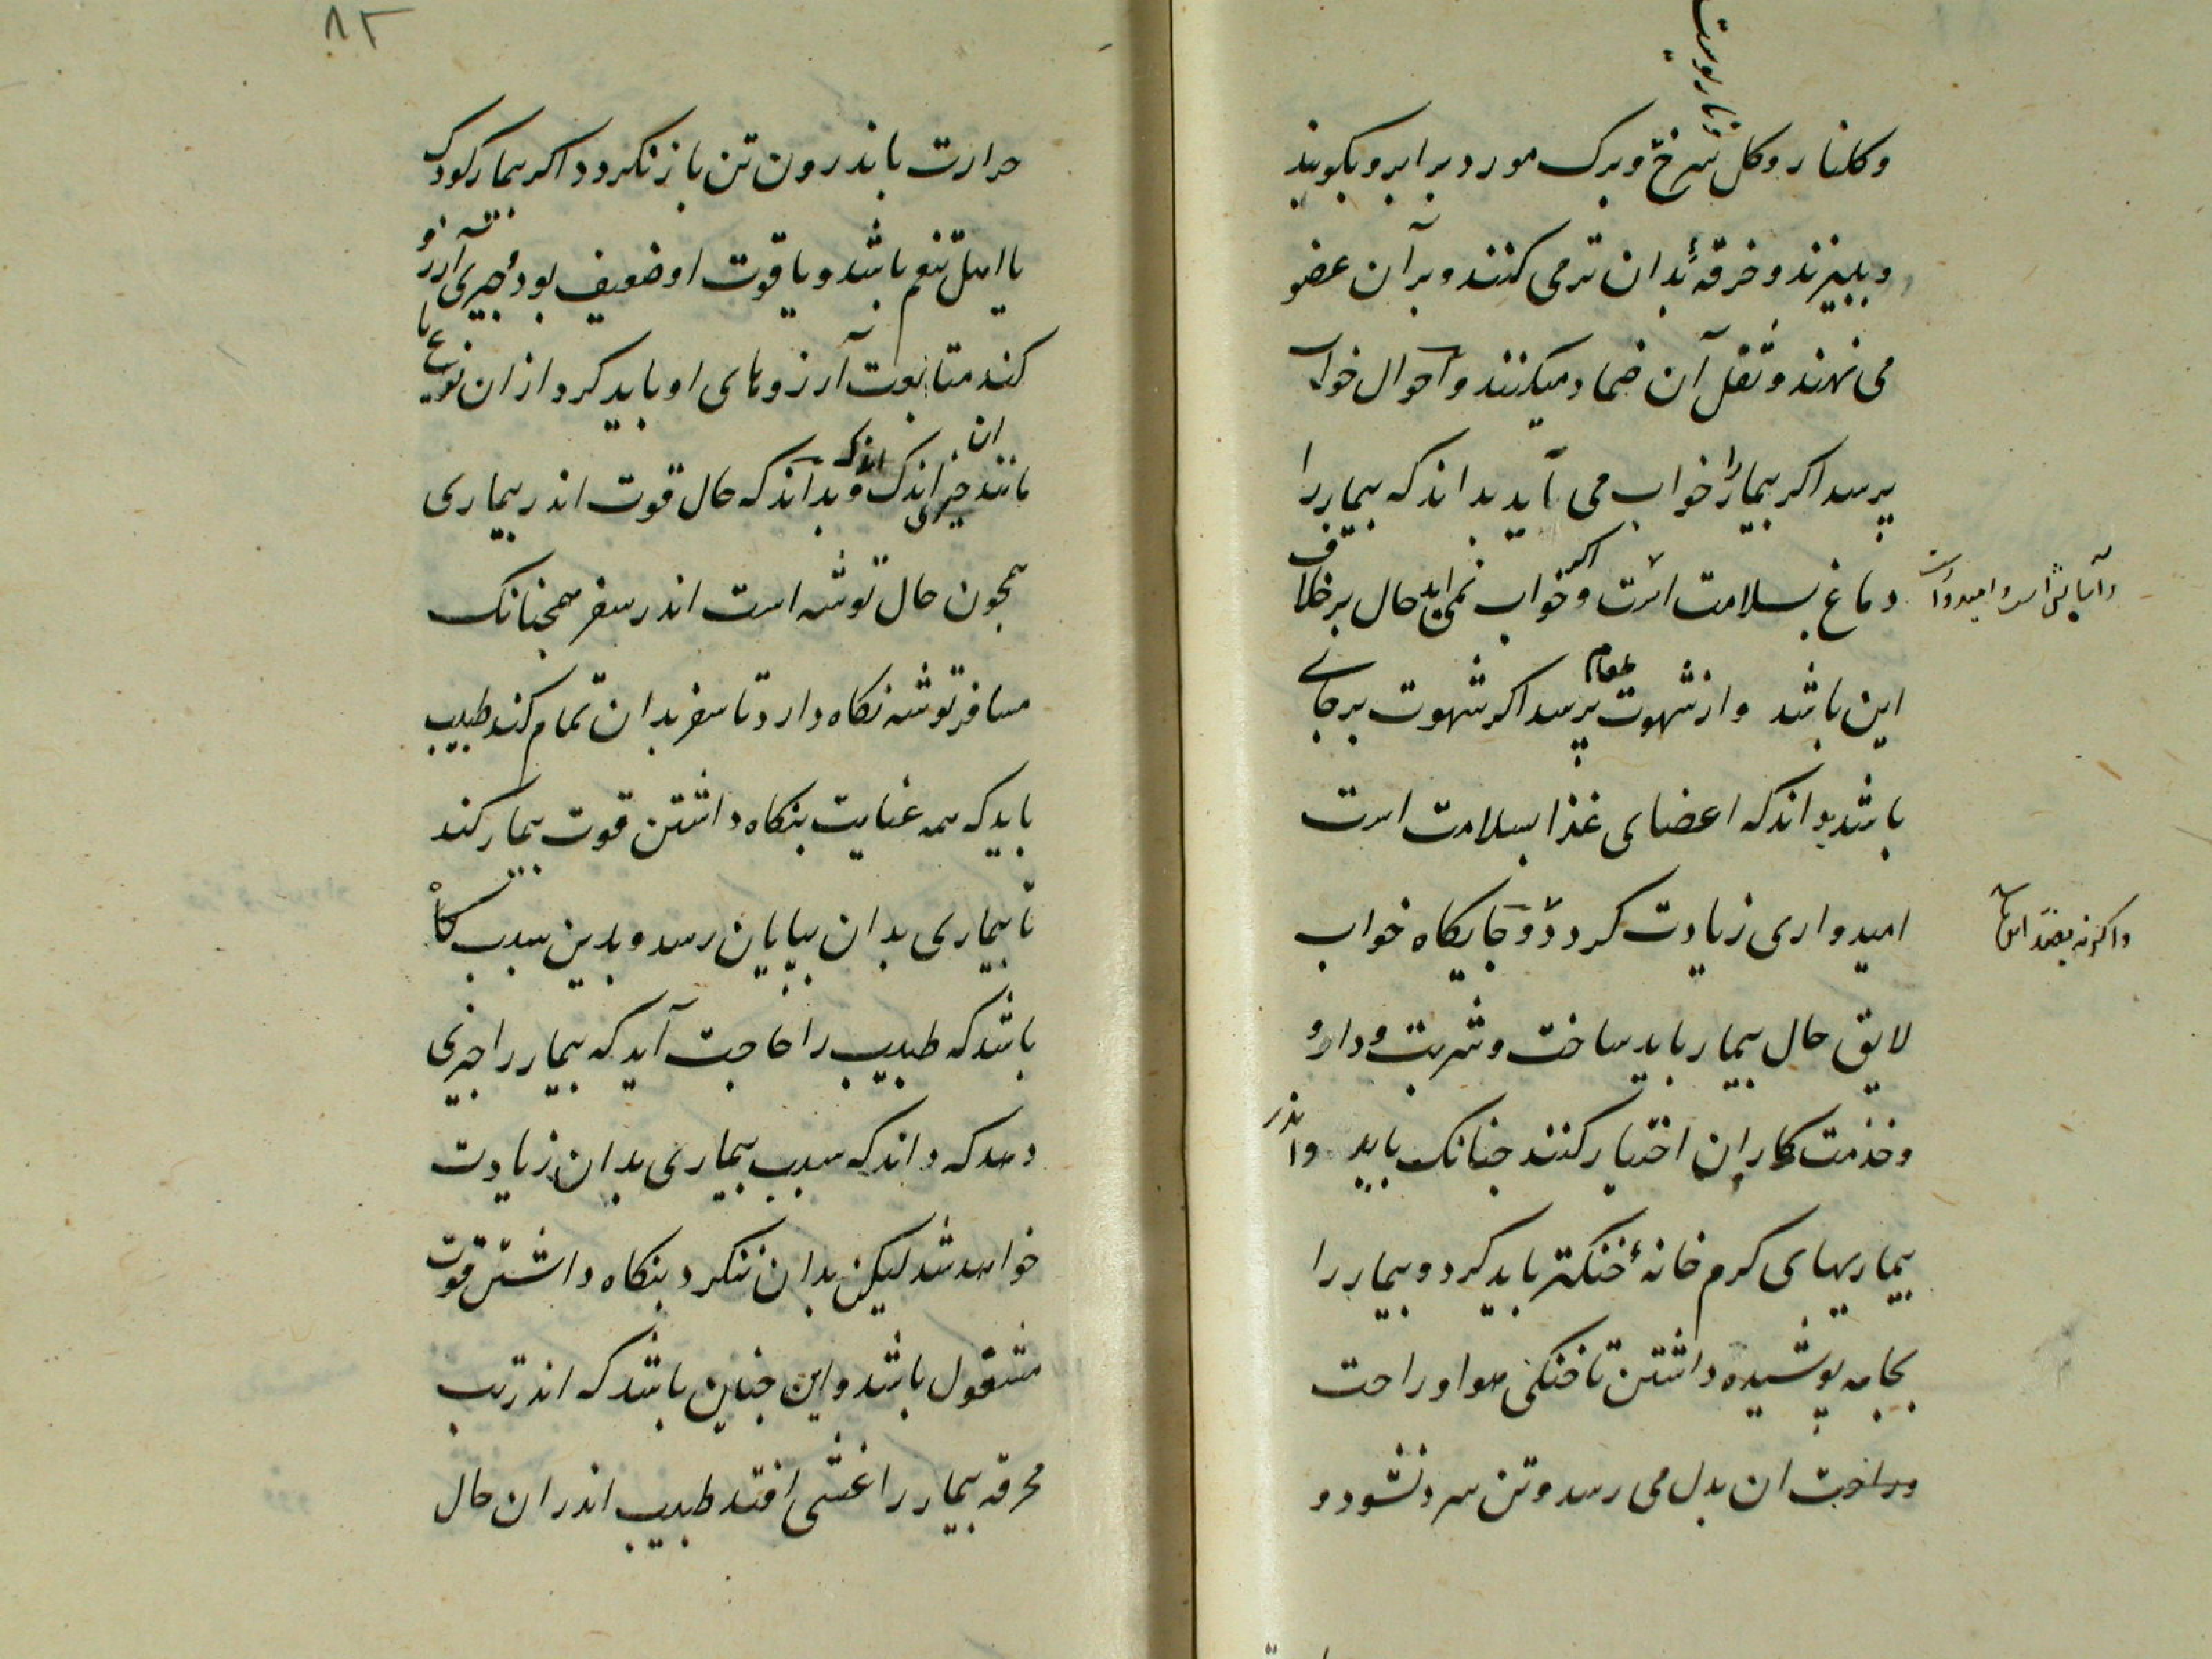 وکلنار وکل سرخ وبرک مورد برابر وبکوبند
وببیزند وخرقهٔ بدان تر می کنند وبرآن عضو
می نهند وثفل آن ضماد میکنند واحوال خواب
پرسد اکر بیمار را خواب می آید بداند که بیمار را
دماغ بسلامت است واکر خواب نمی اید حال برخلاف
این باشد واز شهوت طعام پرسد اکر شهوت برجای
باشد بداند که اعضای غذا بسلامت است
امیدواری زیادت کردد وجایکاه خواب
لایق حال بیمار باید ساخت وشربت ودارو
وخذمت کاران اختیار کنند جنانک باید واندر
بیماریهای کرم خانهٔ خنکتر باید کرد وبیمار را
بجامه پوشیده داشتن تا خنکی هوا وراحت
وراحت ان بدل می رسد وتن سرد نشود و
واکر نه بضد این
۸۲
حرارت باندرون تن باز نکردد اکر بیمار کودک
یا اهل تنعم باشد ویا قوت او ضعیف بود وجیزی آرزو
کند متابعت آرزوهای او باید کرد از ان نوع یا
مانند ان جیزی اندک اندک وبداند که حال قوت اندر بیماری
همجون حال توشه است اندر سفر همجنانک
مسافر توشه نکاه دارد تا سفر بدان تمام کند طبیب
باید که همه عنایت بنکاه داشتن قوت بیمار کند
تا بیماری بدان بپایان رسد وبدین سبب کاه
باشد که طبیب را حاجت آید که بیمار را جیزی
دهد که داند که سبب بیماری بدان زیادت
خواهد شد لیکن بدان ننکرد بنکاه داشتن قوت
مشغول باشد واین جنین باشد که اندر تب
محرقه بیمار را غشی افتد طبیب اندر ان حال